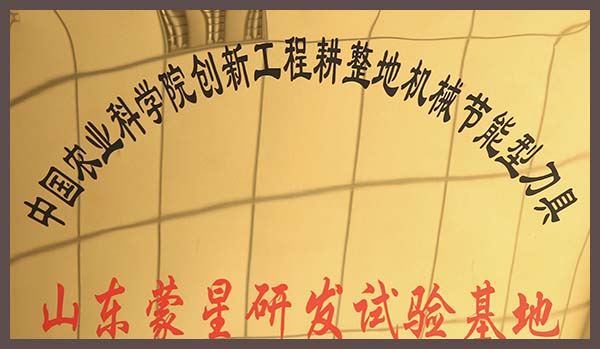 中国农业科学院创新工程耕整地机械节能型刀具
山东蒙星研发试验基地